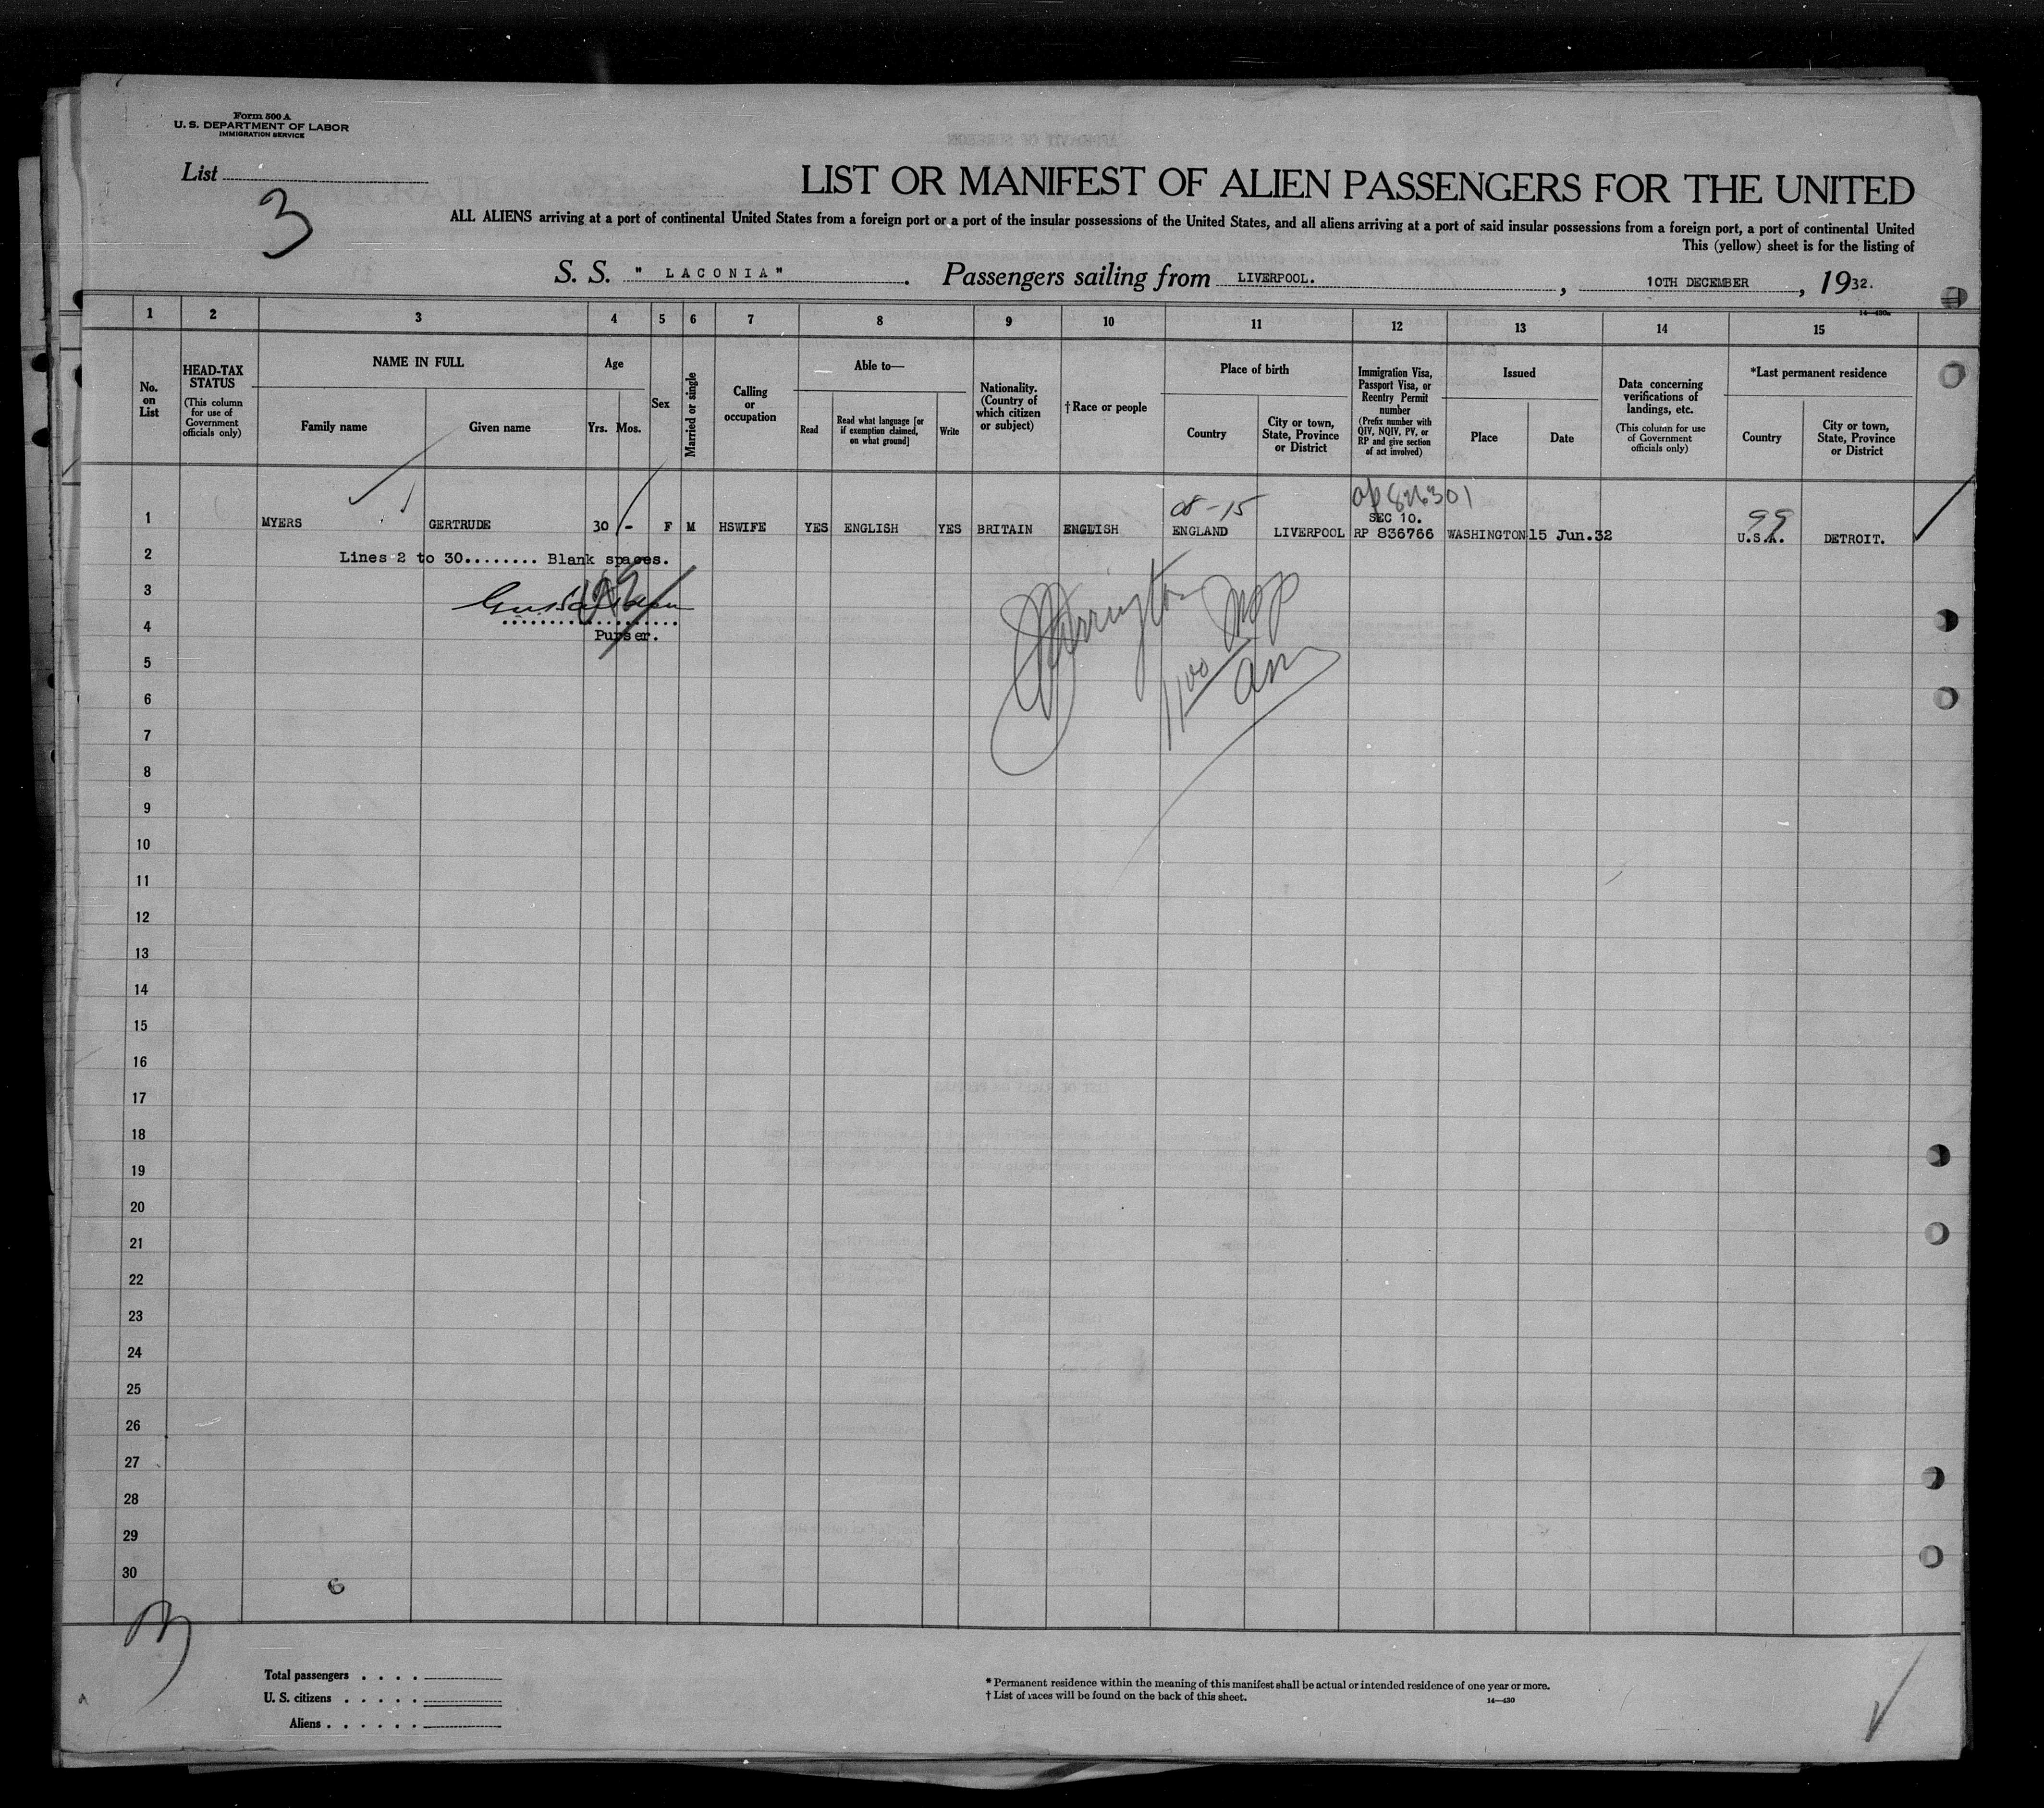 Form 500 A
U. S. DEPARTMENT OF LABOR
IMMIGRATION SERVICE
List
3
LIST OR MANIFEST OF ALIEN PASSENGERS FOR THE UNITED
ALL ALIENS arriving at a port of continental United States from a foreign port or a port of the insular possessions of the United States, and all aliens arriving at a port of said insular possessions from a foreign port, a port of continental United
This (yellow) sheet is for the listing of
S. S. " LACONIA" . Passengers sailing from LIVERPOOL. , 10TH DECEMBER , 1932.
14—430a
1 2 3 4 5 6 7 8 9 10 11 12 13 14 15
No. on List
HEAD-TAX STATUS
(This column for use of Government officials only)
NAME IN FULL
Family name
Given name
Age
Yrs. Mos.
Sex
Married or single
Calling or occupation
Able to—
Read
Read what language [or if exemption claimed, on what ground]
Write
Nationality. (Country of which citizen or subject)
†Race or people
Place of birth
Country
City or town, State, Province or District
Immigration Visa, Passport Visa, or Reentry Permit number
(Prefix number with QIV, NQIV, PV, or RP and give section of act involved)
Issued
Place
Date
Data concerning verifications of landings, etc.
(This column for use of Government officials only)
*Last permanent residence
Country
City or town, State, Province or District
08-15
SEC 10.
99
1 MYERS GERTRUDE 30 - F M HSWIFE YES ENGLISH YES BRITAIN ENGLISH ENGLAND LIVERPOOL RP 836766 WASHINGTON 15 Jun.32 U.S.A. DETROIT.
2 Lines 2 to 30........ Blank spaces.
3
4
Purser.
5
6
7
8
9
10
11
12
13
14
15
16
17
18
19
20
21
22
23
24
25
26
27
28
29
30
Total passengers . . . .
U. S. citizens . . . . .
Aliens . . . . . .
* Permanent residence within the meaning of this manifest shall be actual or intended residence of one year or more.
† List of races will be found on the back of this sheet.
14—430